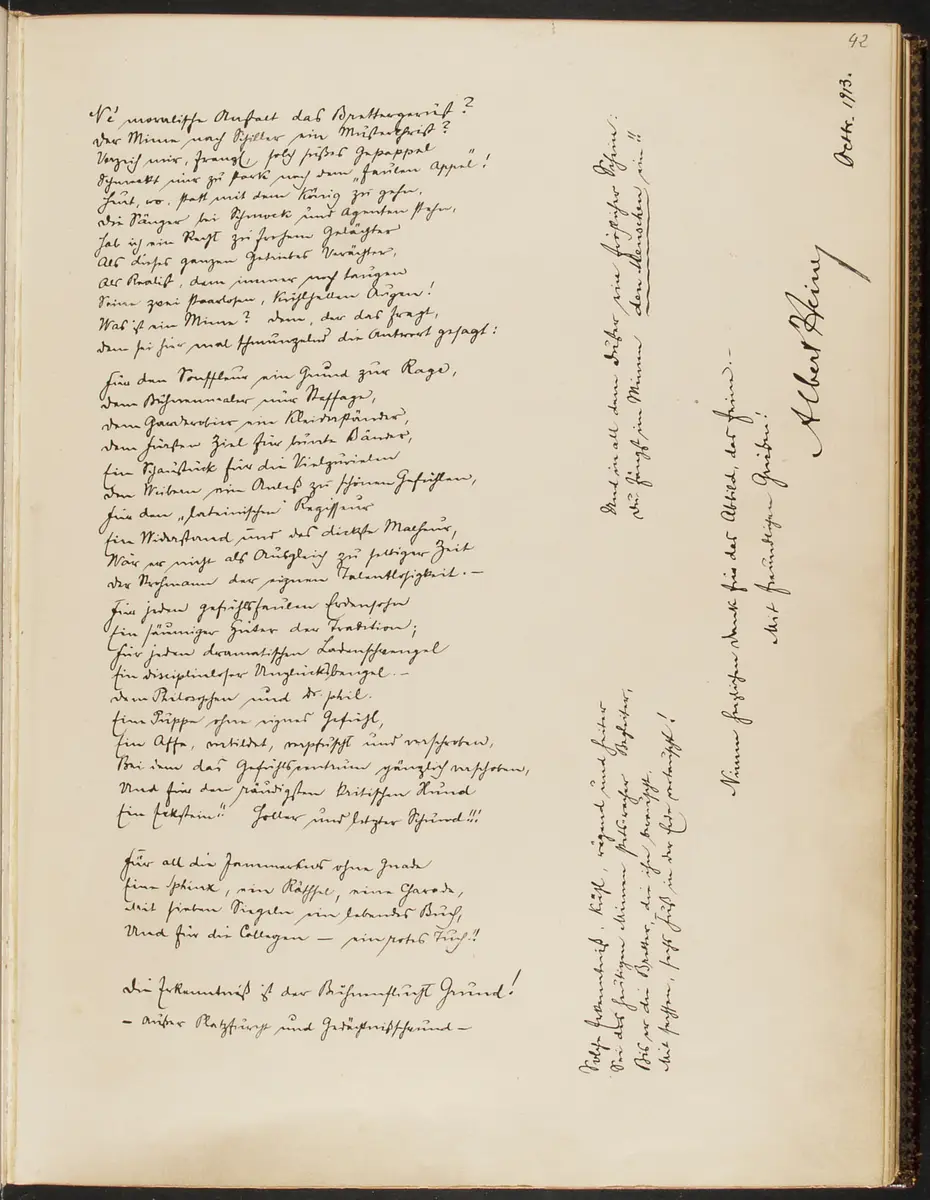 42
Ne' moralische Anstalt das Brettergerüst?
Der Mime nach Schiller ein Musterchrist?
Verzeih mir, Franzl, solch süßes Gepappel
Schmeckt mir zu stark nach dem „Faulen Appel"!
Heut, wo, statt mit dem König zu gehn,
Die Sänger bei Schmock und Agenten stehn,
Hab ich ein Recht zu frohem Gelächter
Als dieses ganzen Getriebes Verächter,
Als Realist, dem immer noch taugen
Seine zwei staarlosen, kühlhellen Augen!
Was ist ein Mime? Dem, der das fragt,
Dem sei hier mal schmunzelnd die Antwort gesagt:
Für den Souffleur ein Grund zur Rage,
Dem Bühnenmaler nur Staffage,
Dem Garderobier ein Kleiderständer,
Dem Fürsten Ziel für bunte Bänder,
Ein Schaustück für die Vielzuvielen
Den Weibern ein Anlaß zu schönen Gefühlen,
Für den „lateinischen" Regisseur
Ein Widerstand und das dickste Malheur,
Wär er nicht als Ausgleich zu selbiger Zeit
Der Strohmann der eignen Talentlosigkeit. –
Für jeden gefühlsfaulen Erdensohn
Ein säumiger Hüter der Tradition;
Für jeden dramatischen Ladenschwengel
Ein disciplinloser Unglücksbengel. –
Dem Philosophen und Dr. phil.
Eine Puppe ohne eignes Gefühl,
Ein Affe, verbildet, verpfuscht und verschroben,
Bei dem das Gefühlscentrum gänzlich verschoben,
Und für den räudigsten kritischen Hund
Ein Eckstein!! Toller und letzter Schund!!!
Für all die Jammerkerls ohne Gnade
Eine Sphinx, ein Räthsel, eine Charade,
Mit sieben Siegeln ein lebendes Buch,
Und für die Collegen – ein rotes Tuch!!
Die Erkenntniß ist der Bühnenflucht Grund!
– außer Platzfurcht und Gedächtnißschwund –
Solche Erkenntniß, kühl, und heiter
Sei des heutigen Mimen Begleiter,
Bis er die Bretter, die ihn
Mit sechsen, sechs Fuß in der Erde vertauscht!
Und in all dem Düster ein Schein:
Du fängst im Mimen den Menschen ein!!
Nimm herzlichen Dank für das Abbild, das fein. –
Mit freundlichen Grüßen!
Albert Heine
Octbr. 1913.